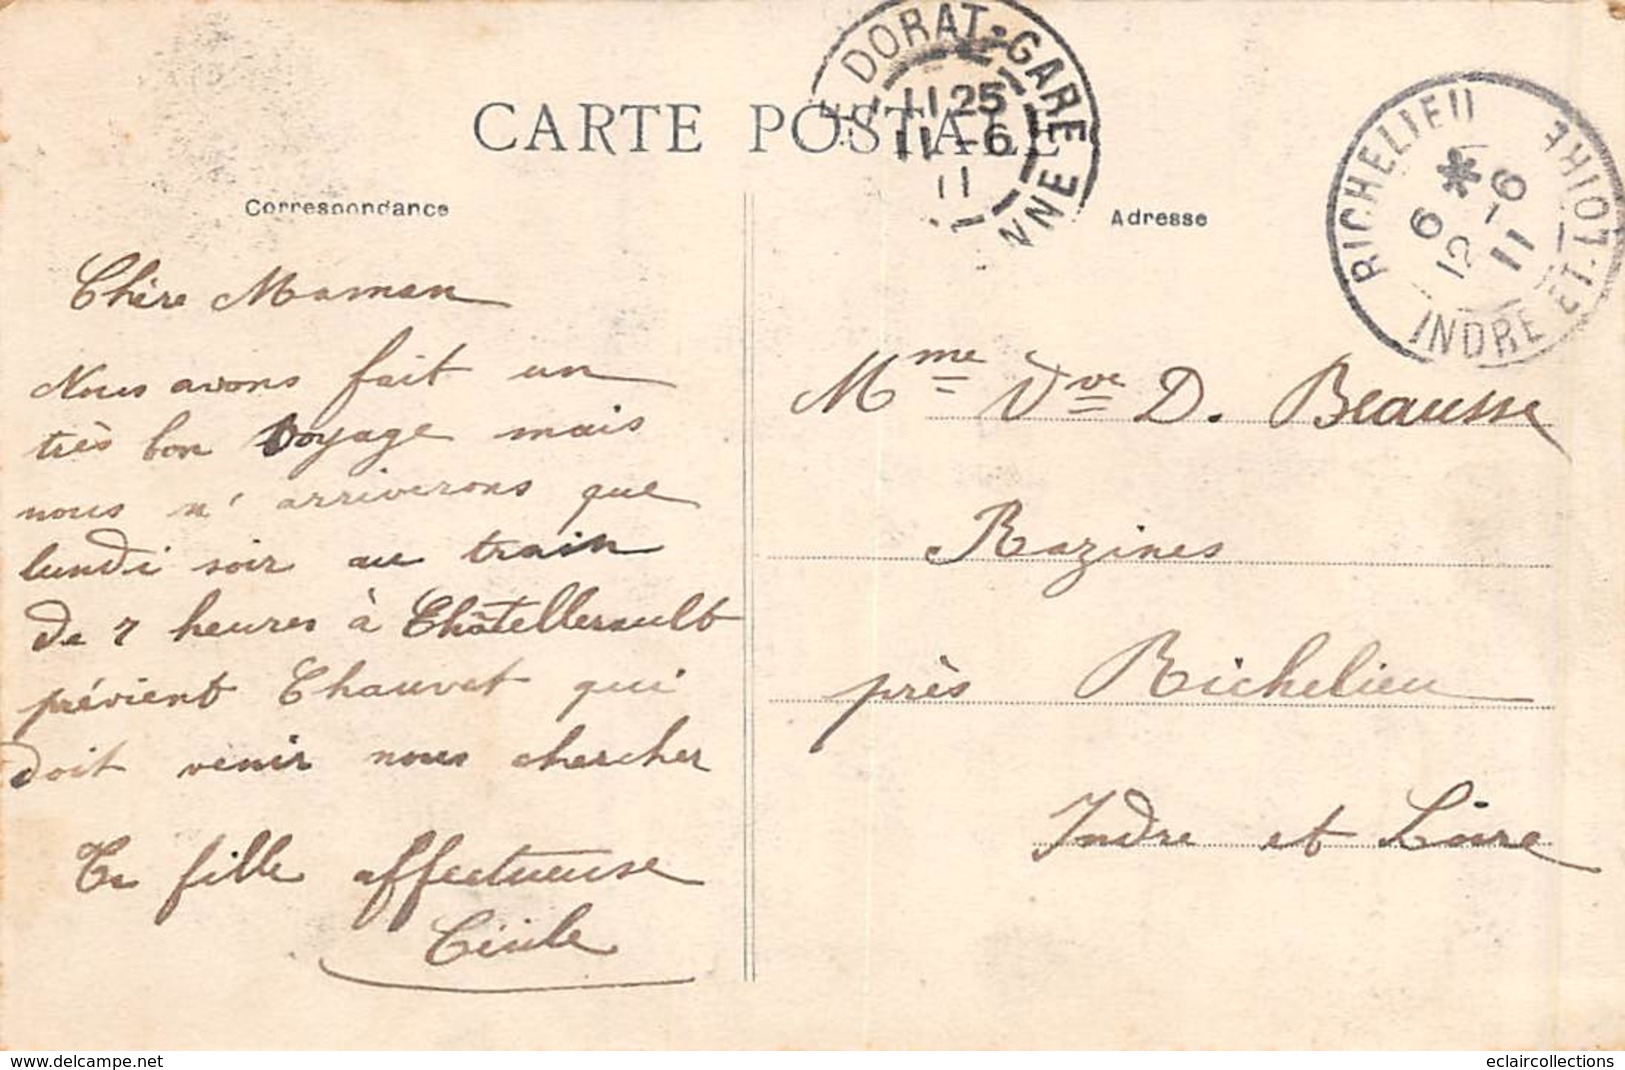 CARTE POSTALE
DORAT-GARE
11 25
11 -6
11
NNE
RICHELIEU
INDRE ET-LOIRE
*
6 6
12 - 11
Correspondance
Adresse
Chère Maman
Nous avons fait un
très bon voyage mais
nous n'arriverons que
lundi soir au train
de 7 heures à Châtellerault
prévient Chauvet qui
doit venir nous chercher
Ta fille affectueuse
Cécile
Mme Vve D. Beausse
Razines
près Richelieu
Indre et Loire
www.delcampe.net
eclaircollections